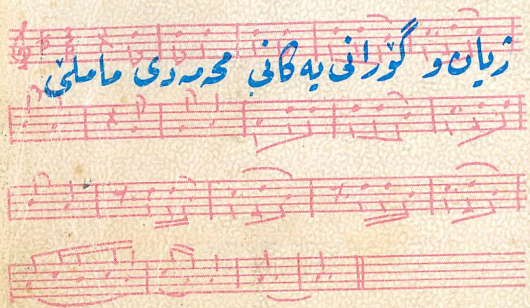 ژیان و گۆرانی یەکانی محەمەدی ماملێ